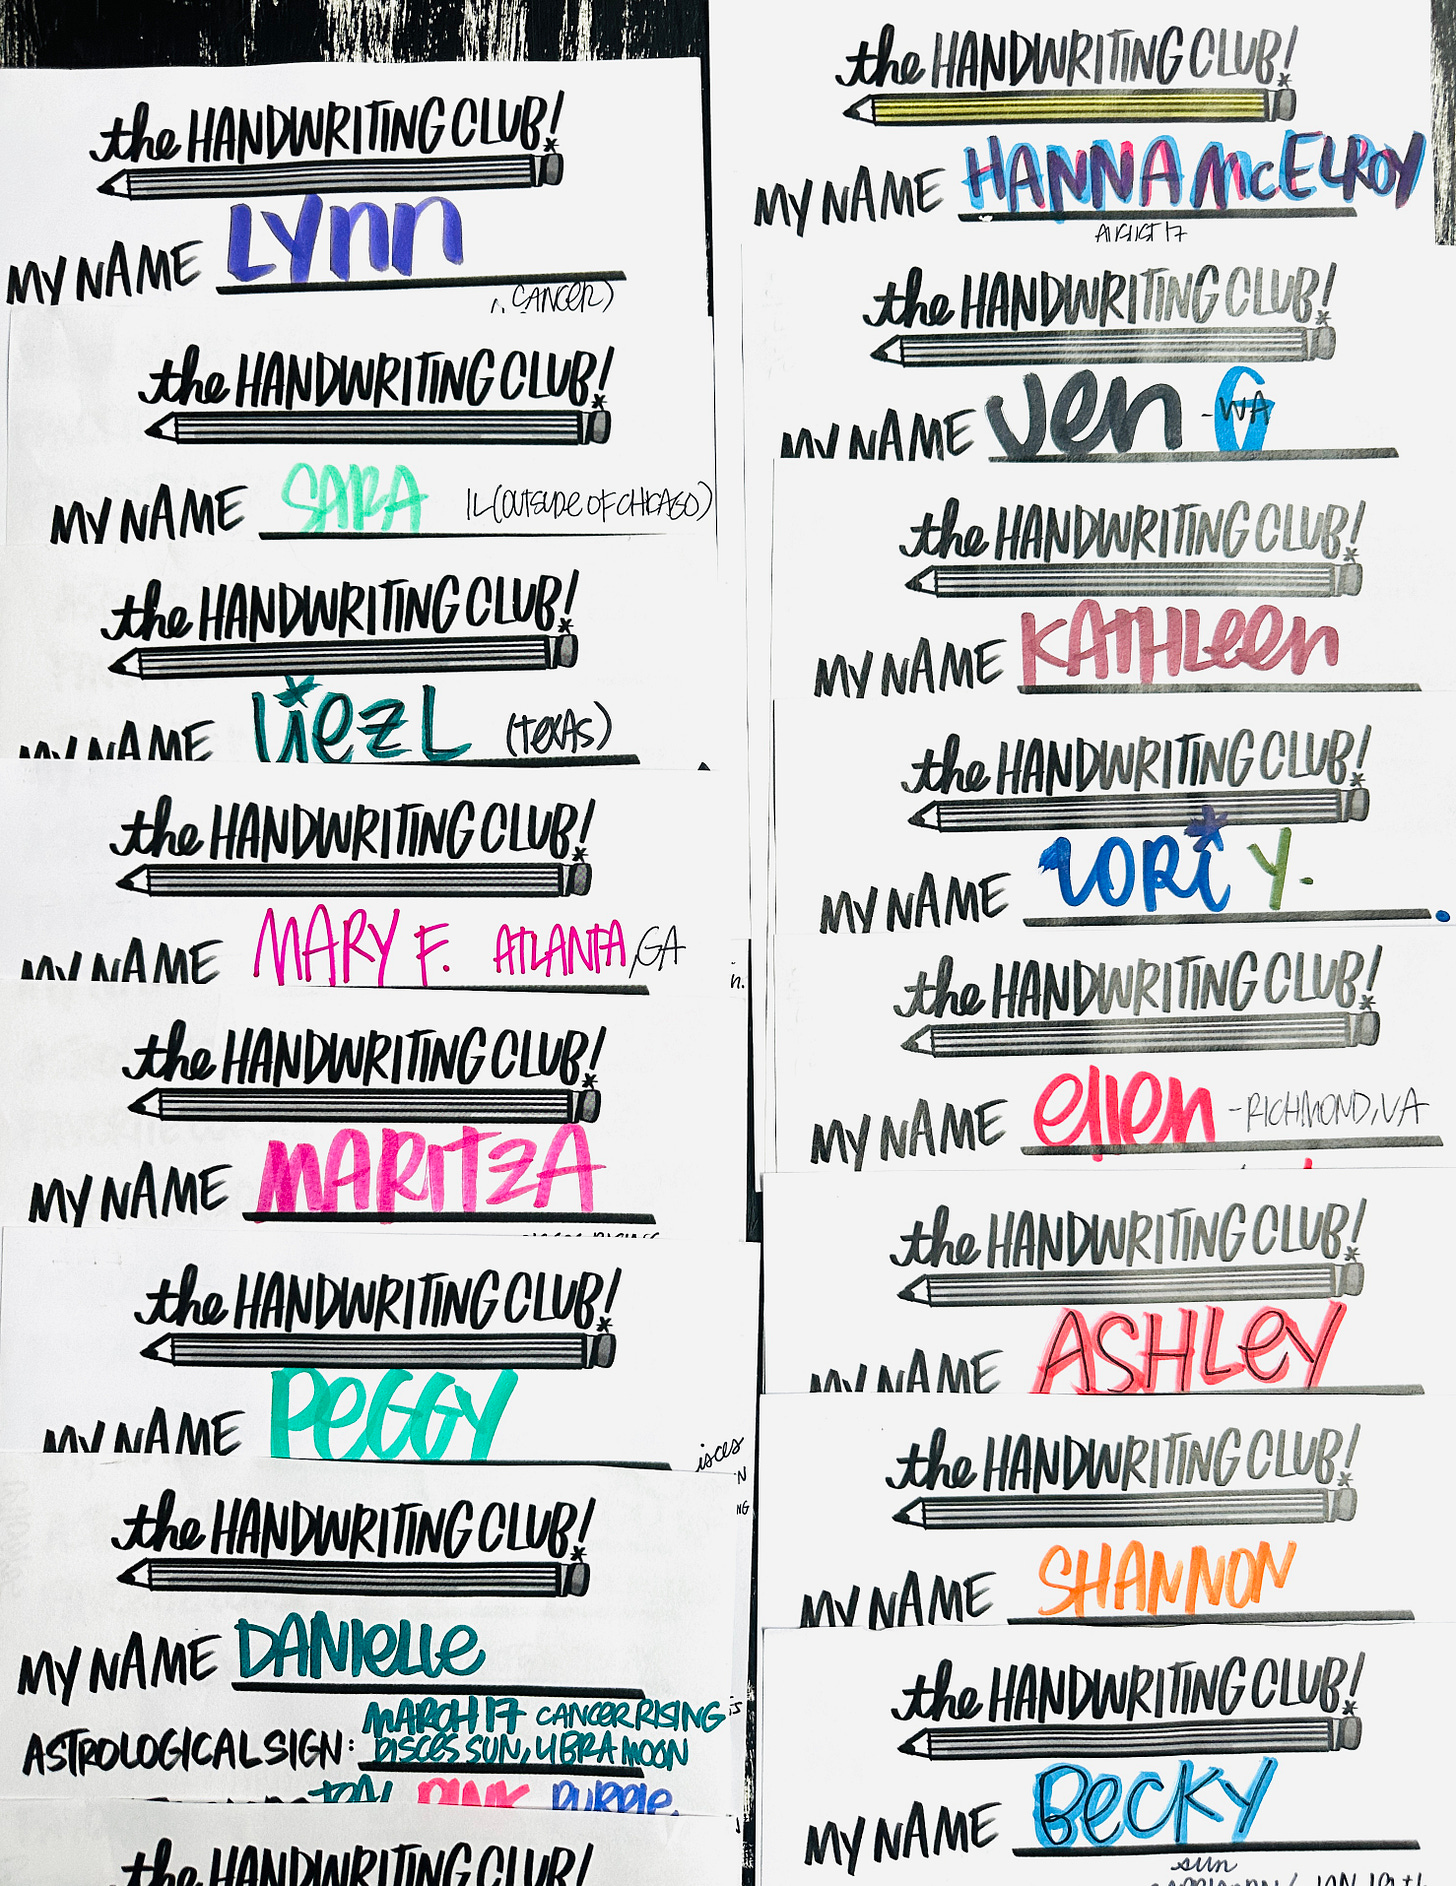 the HANDWRITING CLUB!
MY NAME LYNN
CANCER)
the HANDWRITING CLUB!
MY NAME SARA IL (OUTSIDE OF CHICAGO)
the HANDWRITING CLUB!
MY NAME LiezL (TEXAS)
the HANDWRITING CLUB!
MY NAME MARY F. ATLANTA, GA
the HANDWRITING CLUB!
MY NAME MARITZA
the HANDWRITING CLUB!
MY NAME PeGGY
isces
the HANDWRITING CLUB!
MY NAME DANIELLe
ASTROLOGICAL SIGN: MARCH 17 CANCER RISING
PISCES SUN, LIBRA MOON
TEAL PINK PURPLE,
the HANDWRITING CLUB!
the HANDWRITING CLUB!
MY NAME HANNA McELROY
AUGUST 17
the HANDWRITING CLUB!
MY NAME Jen G -WA
the HANDWRITING CLUB!
MY NAME KATHLeen
the HANDWRITING CLUB!
MY NAME LORi Y.
the HANDWRITING CLUB!
MY NAME ellen -RICHMOND, VA
the HANDWRITING CLUB!
MY NAME ASHLeY
the HANDWRITING CLUB!
MY NAME SHANNON
the HANDWRITING CLUB!
MY NAME BeCKY
sun